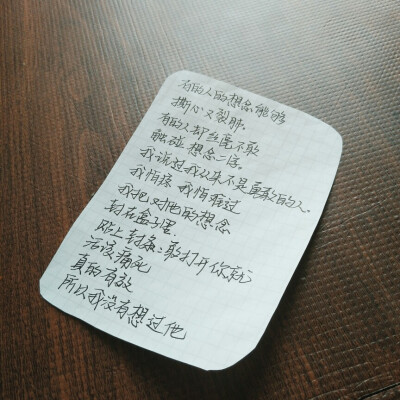 有的人的想念能够
撕心又裂肺.
有的人却丝毫不敢
触碰 想念二字.
我说过我从来不是勇敢的人.
我怕疼 我怕难过
我把对他的想念
封在盒子里.
贴上封条:敢打开你就
活该痛死
真的有效
所以我没有想过他